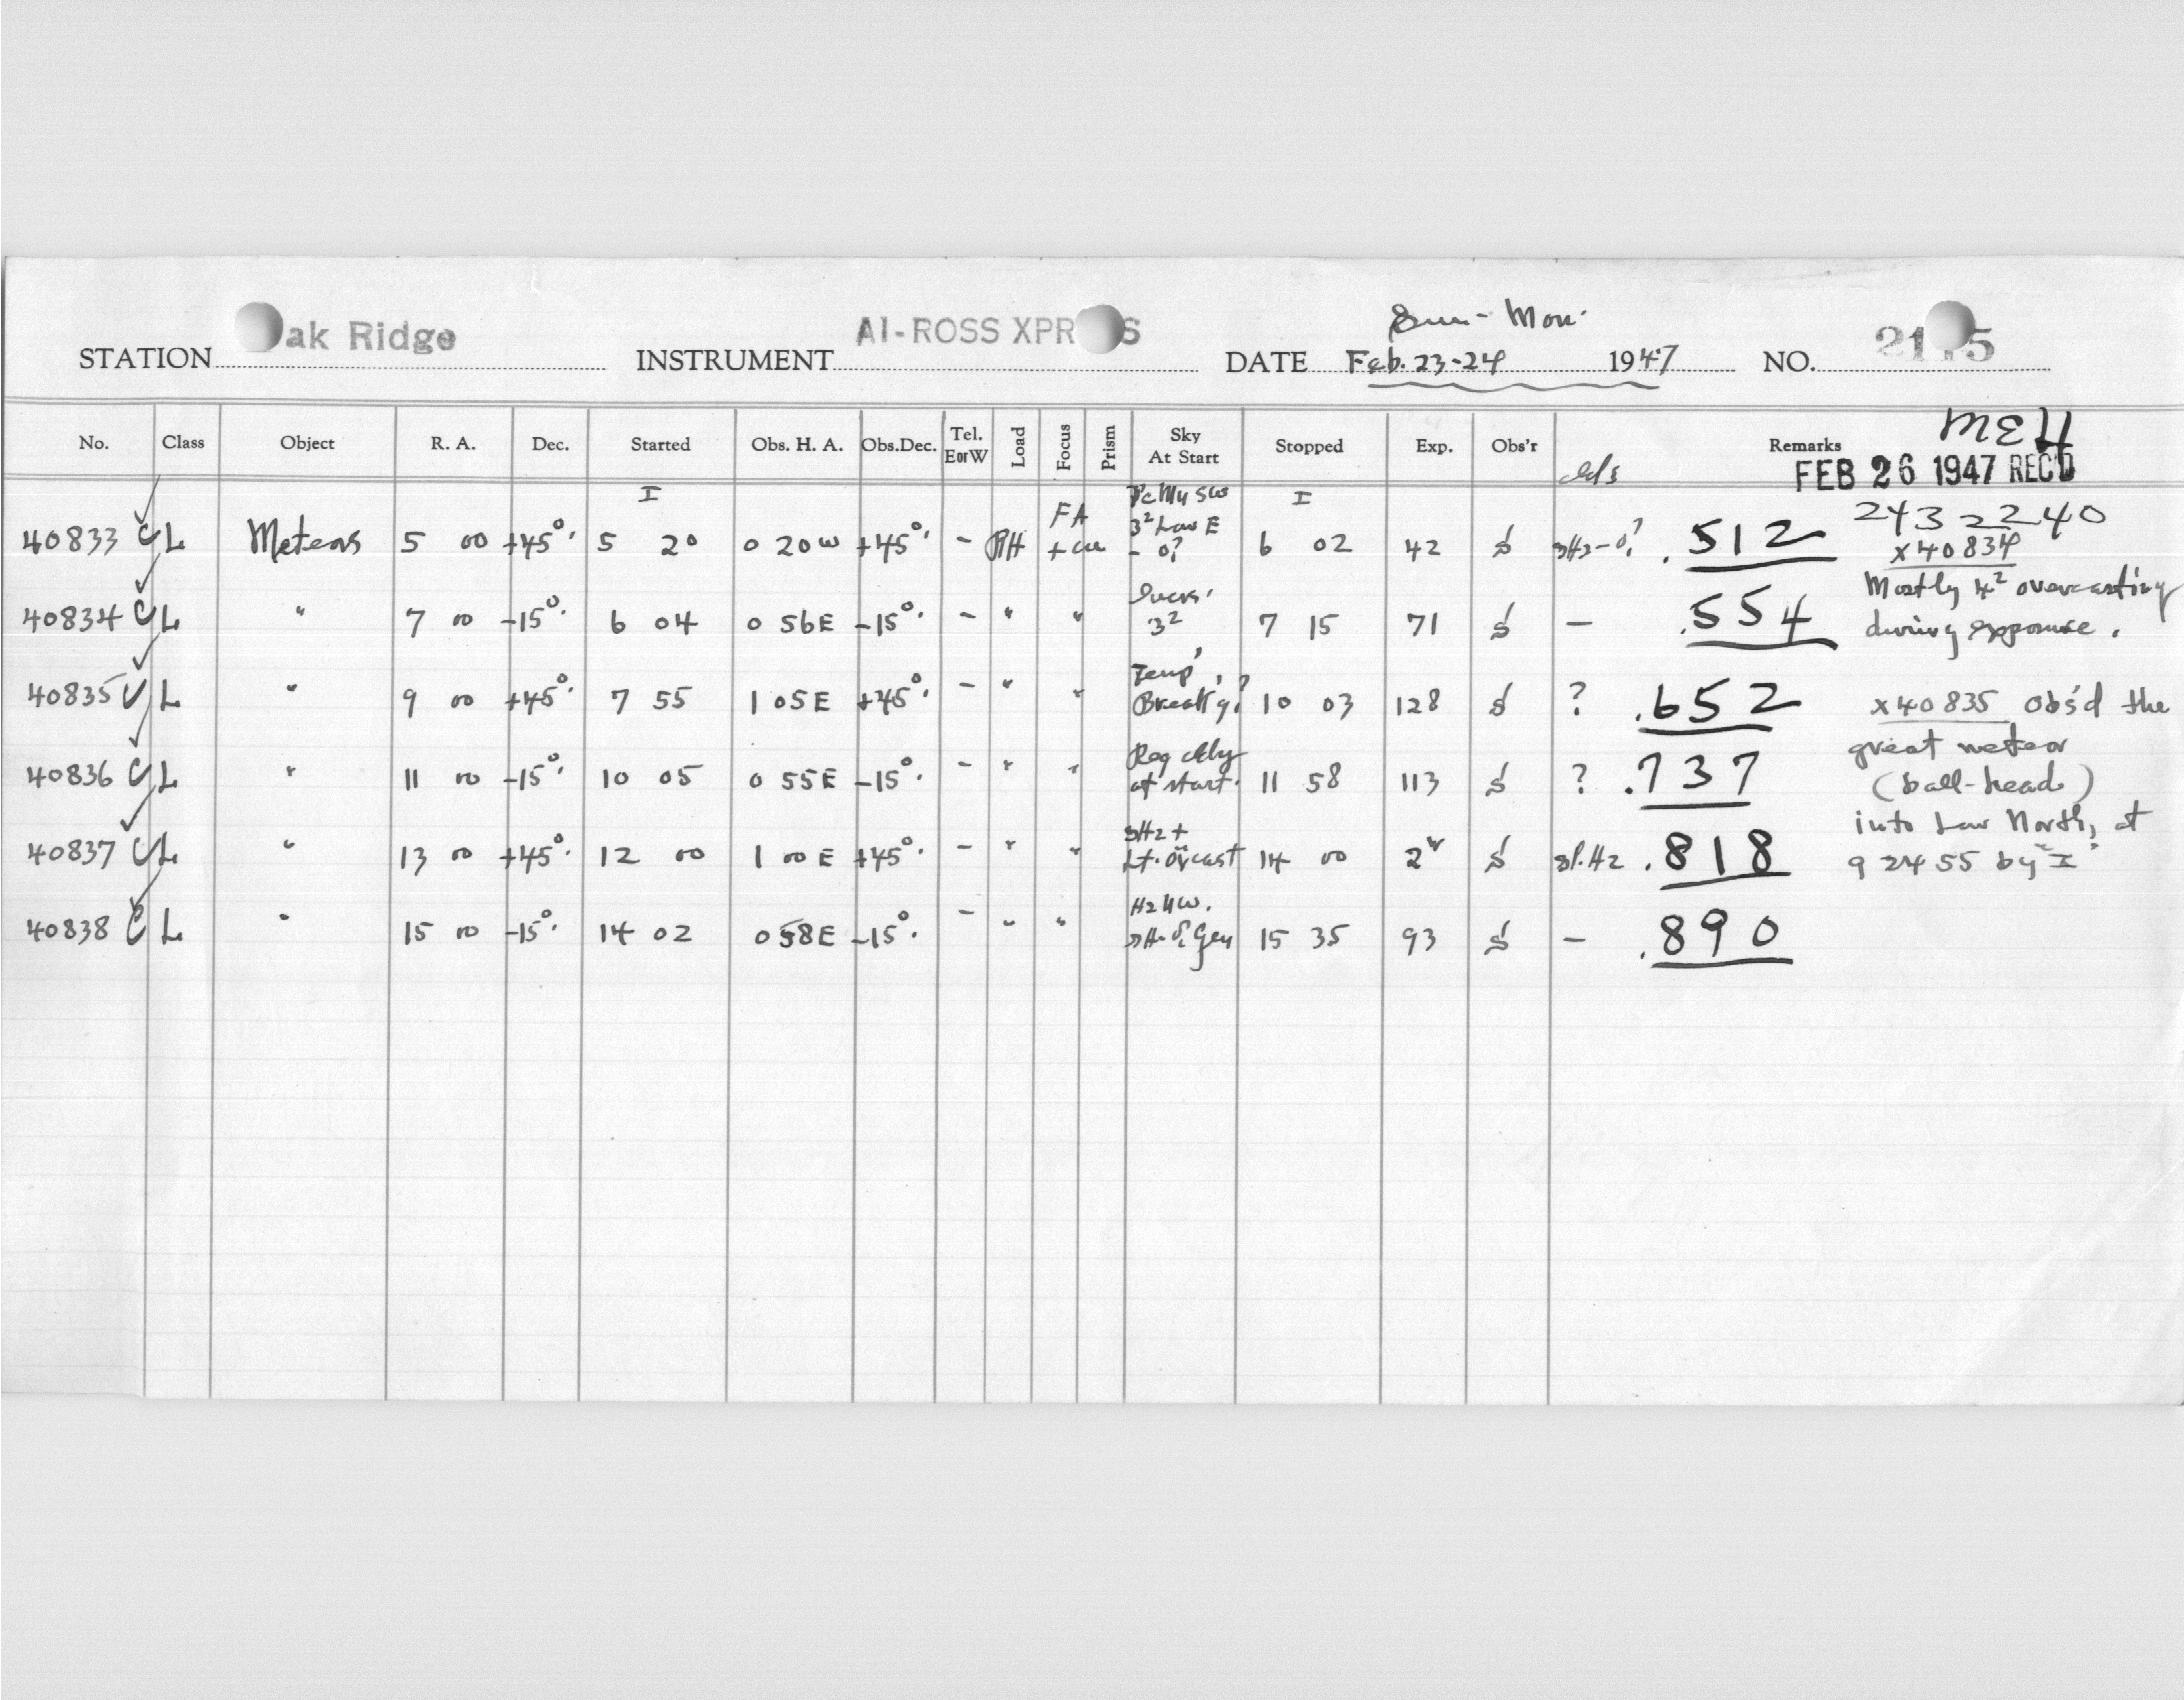 Sun - Mon.
STATION ak Ridge INSTRUMENT AI-ROSS XPR S DATE Feb. 23-24 1947 NO. 21 5
No. Class Object R. A. Dec. Started Obs. H. A. Obs.Dec. Tel. EorW Load Focus Prism Sky At Start Stopped Exp. Obs'r Remarks MEH
FEB 26 1947 REC'D
I I 2432240
40833 C L Meteors 5 00 +45°. 5 20 0 20W +45°. - RH FA 3² Low E - 0? 6 02 42 S sHz-0? .512
x40834
Mostly 4² overcasting
40834 C L " 7 00 -15°. 6 04 0 56E -15°. - " " 3² 7 15 71 S - .554
during exposure.
40835 C L " 9 00 +45°. 7 55 1 05E +45°. - " " Temp' Break'g? 10 03 128 S ? .652
x40835 obs'd the
great meteor
40836 C L " 11 00 -15°. 10 05 0 55E -15°. - " " Reg cldy at start. 11 58 113 S ? .737
(ball-head)
into Low North, at
40837 C L " 13 00 +45°. 12 00 1 00 E +45°. - " " sHz + Lt. ov'cast 14 00 2ʰ S sl.Hz .818
9 24 55 by "I"
40838 C L " 15 00 -15°. 14 02 0 58E -15°. - " " Hz 15 35 93 S - .890